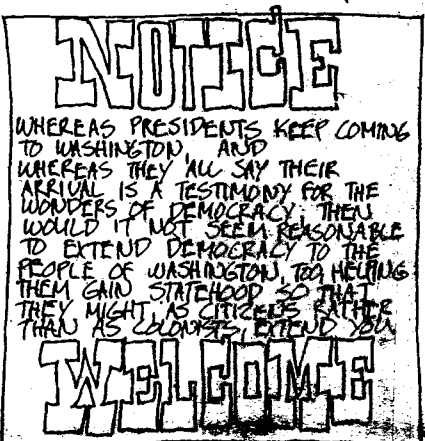 NOTICE
WHEREAS PRESIDENTS KEEP COMING
TO WASHINGTON, AND
WHEREAS THEY ALL SAY THEIR
ARRIVAL IS A TESTIMONY FOR THE
WONDERS OF DEMOCRACY, THEN
WOULD IT NOT SEEM REASONABLE
TO EXTEND DEMOCRACY TO THE
PEOPLE OF WASHINGTON, TOO, HELPING
THEM GAIN STATEHOOD SO THAT
THEY MIGHT, AS CITIZENS RATHER
THAN AS COLONISTS, EXTEND YOU
WELCOME